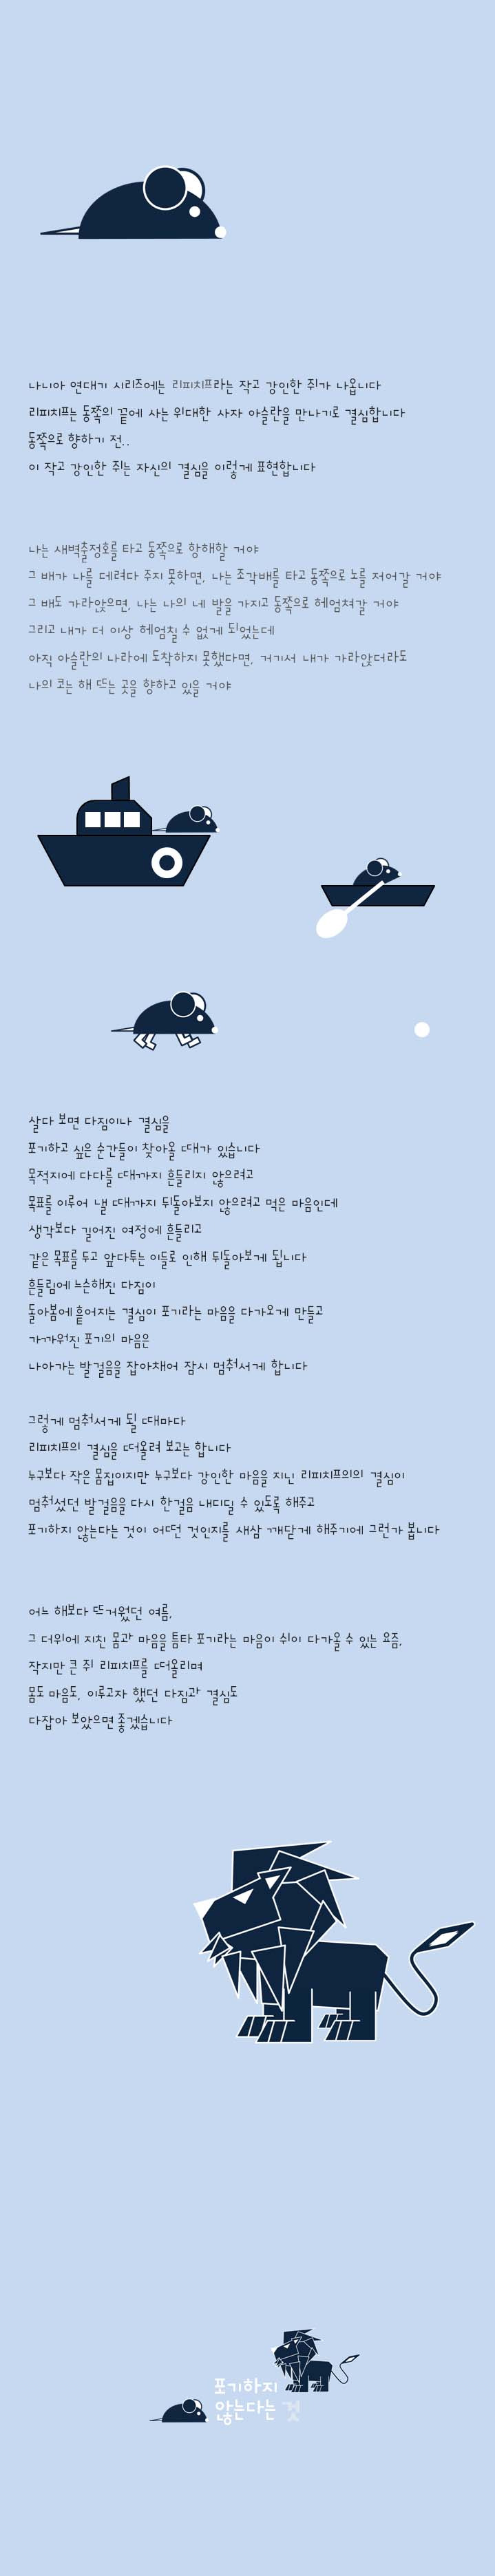 나니아 연대기 시리즈에는 리피치프라는 작고 강인한 쥐가 나옵니다
리피치프는 동쪽의 끝에 사는 위대한 사자 아슬란을 만나기로 결심합니다
동쪽으로 향하기 전..
이 작고 강인한 쥐는 자신의 결심을 이렇게 표현합니다
나는 새벽출정호를 타고 동쪽으로 항해할 거야
그 배가 나를 데려다 주지 못하면, 나는 조각배를 타고 동쪽으로 노를 저어갈 거야
그 배도 가라앉으면, 나는 나의 네 발을 가지고 동쪽으로 헤엄쳐갈 거야
그리고 내가 더 이상 헤엄칠 수 없게 되었는데
아직 아슬란의 나라에 도착하지 못했다면, 거기서 내가 가라앉더라도
나의 코는 해 뜨는 곳을 향하고 있을 거야
살다 보면 다짐이나 결심을
포기하고 싶은 순간들이 찾아올 때가 있습니다
목적지에 다다를 때까지 흔들리지 않으려고
목표를 이루어 낼 때까지 뒤돌아보지 않으려고 먹은 마음인데
생각보다 길어진 여정에 흔들리고
같은 목표를 두고 앞다투는 이들로 인해 뒤돌아보게 됩니다
흔들림에 느슨해진 다짐이
돌아봄에 흩어지는 결심이 포기라는 마음을 다가오게 만들고
가까워진 포기의 마음은
나아가는 발걸음을 잡아채어 잠시 멈춰서게 합니다
그렇게 멈춰서게 될 때마다
리피치프의 결심을 떠올려 보고는 합니다
누구보다 작은 몸집이지만 누구보다 강인한 마음을 지닌 리피치프의의 결심이
멈춰섰던 발걸음을 다시 한걸음 내디딜 수 있도록 해주고
포기하지 않는다는 것이 어떤 것인지를 새삼 깨닫게 해주기에 그런가 봅니다
어느 해보다 뜨거웠던 여름,
그 더위에 지친 몸과 마음을 틈타 포기라는 마음이 쉬이 다가올 수 있는 요즘,
작지만 큰 쥐 리피치프를 떠올리며
몸도 마음도, 이루고자 했던 다짐과 결심도
다잡아 보았으면 좋겠습니다
포기하지
않는다는 것